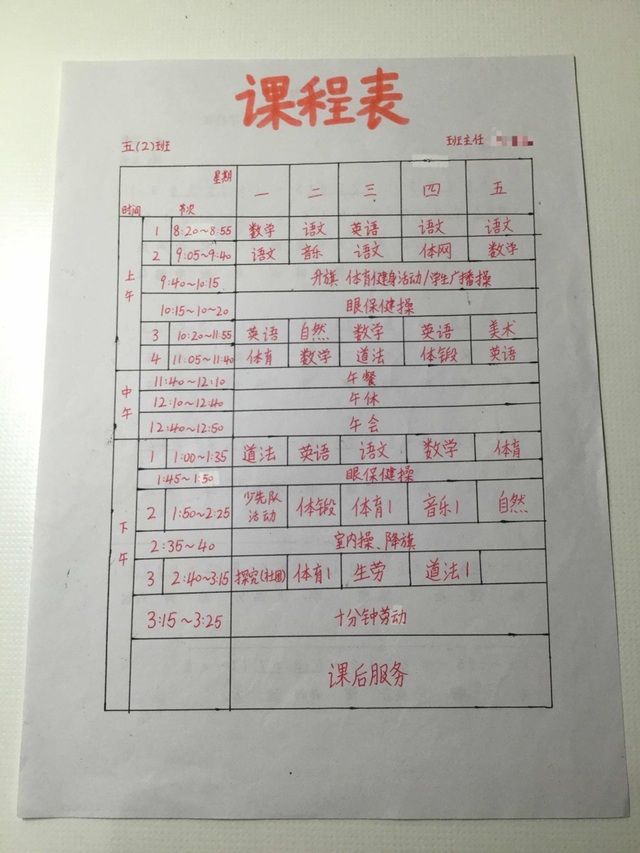 课程表
五(2)班 班主任
星期 一 二 三 四 五
时间 节次
上午
1 8:20~8:55 数学 语文 英语 语文 语文
2 9:05~9:40 语文 音乐 语文 体网 数学
9:40~10:15 升旗 体育健身活动/学生广播操
10:15~10~20 眼保健操
3 10:20~11:55 英语 自然 数学 英语 美术
4 11:05~11:40 体育 数学 道法 体锻 英语
中午
11:40~12:10 午餐
12:10~12:40 午休
12:40~12:50 午会
下午
1 1:00~1:35 道法 英语 语文 数学 体育
1:45~1:50 眼保健操
2 1:50~2:25 少先队活动 体锻 体育1 音乐1 自然
2:35~40 室内操、降旗
3 2:40~3:15 探究(社团) 体育1 生劳 道法1
3:15~3:25 十分钟劳动
课后服务